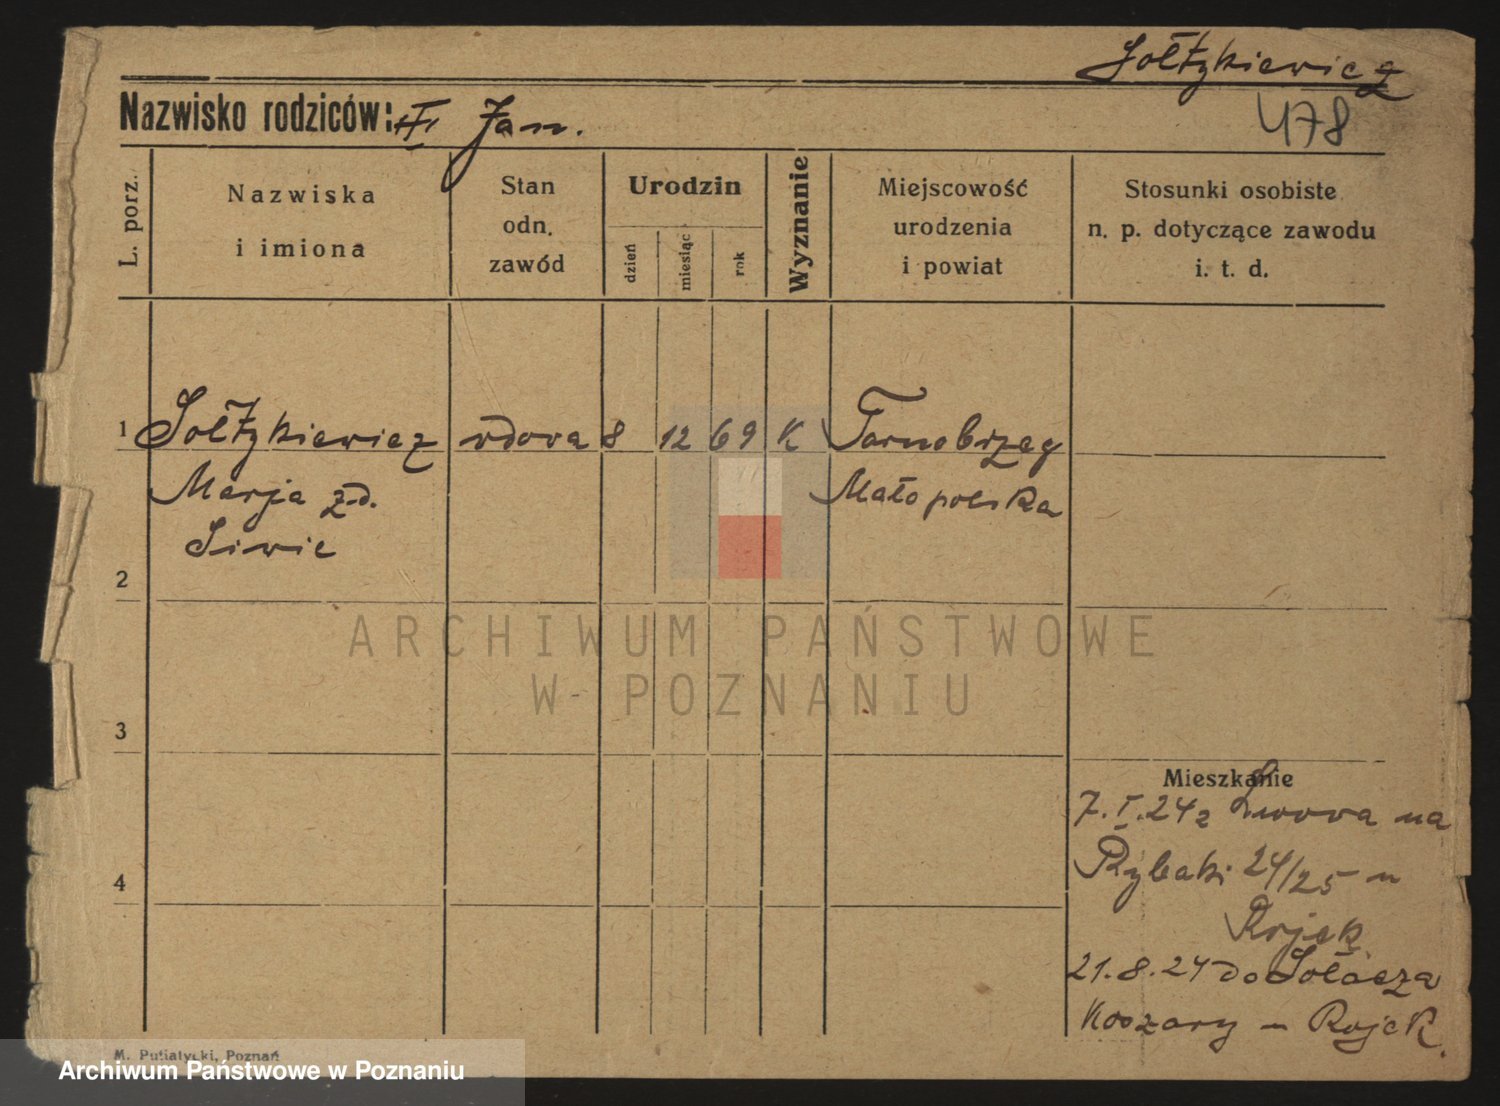 Sołtykiewicz
Nazwisko rodziców: Jan.
478
L. porz.
Nazwiska
i imiona
Stan
odn.
zawód
Urodzin
dzień
miesiąc
rok
Wyznanie
Miejscowość
urodzenia
i powiat
Stosunki osobiste
n. p. dotyczące zawodu
i. t. d.
1 Sołtykiewicz wdowa 8 12 69 K Tarnobrzeg
Marja z d. Małopolska
Siwiec
2
ARCHIWUM PAŃSTWOWE
W POZNANIU
3
Mieszkanie
7.I.24 z Lwowa na
4
Rybaki 24/25 u
Rojek
21.8.24 do Sołacza
Koszary u Rojek.
M. Putiatycki, Poznań
Archiwum Państwowe w Poznaniu